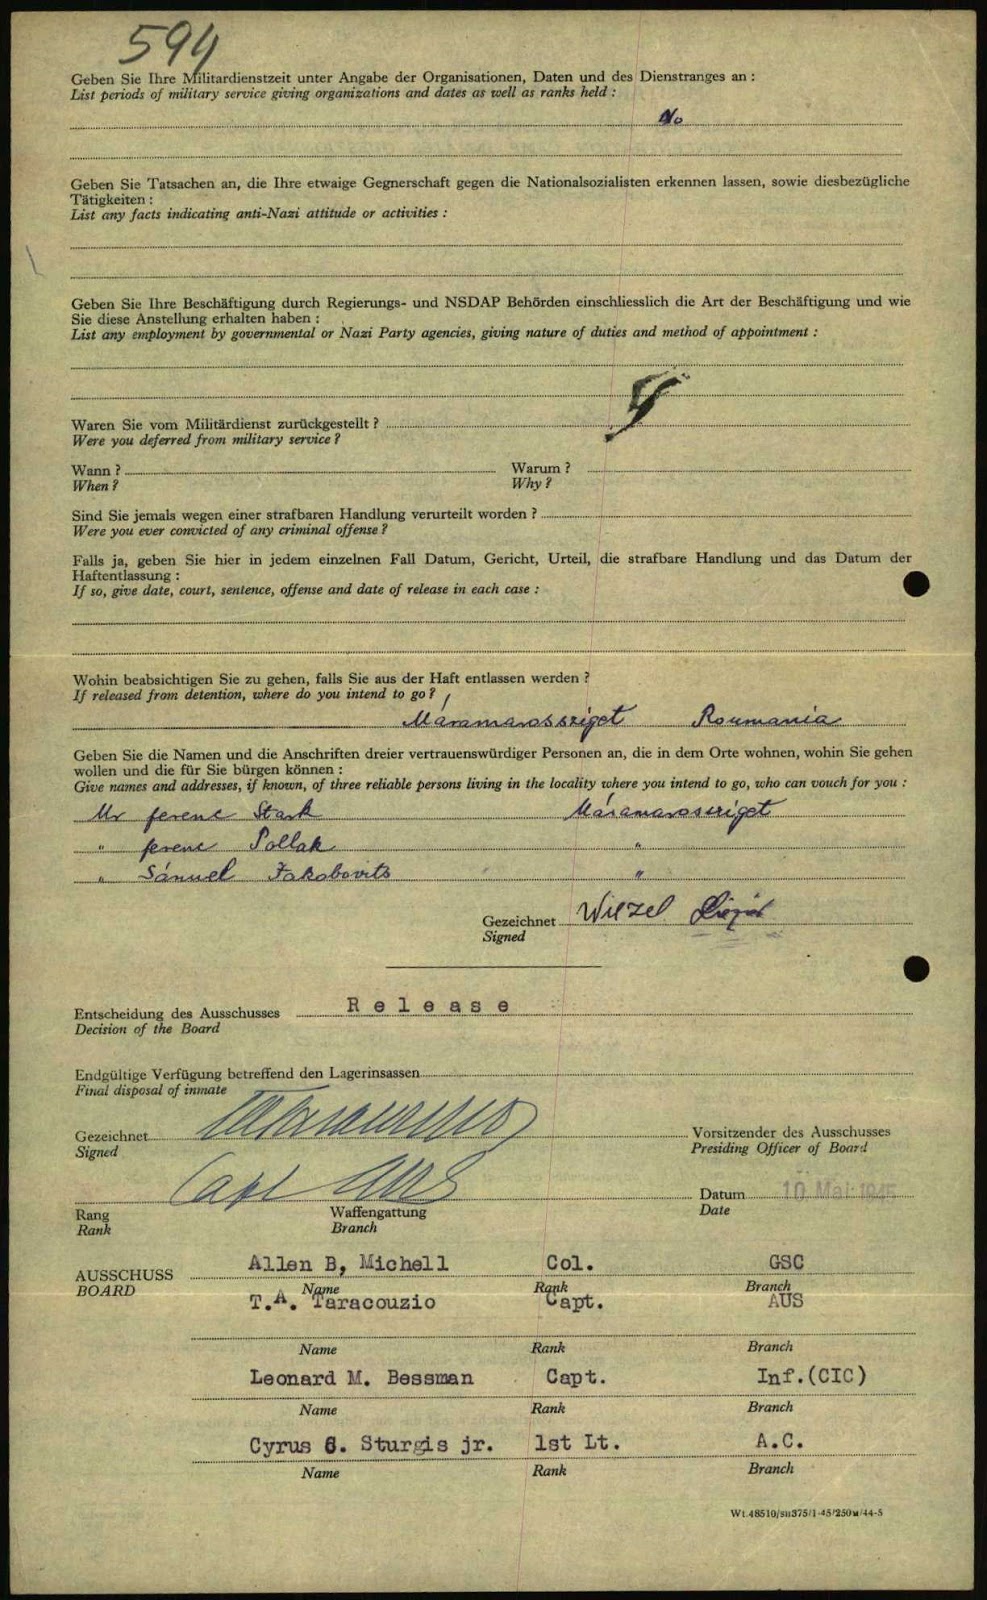 594
Geben Sie Ihre Militardienstzeit unter Angabe der Organisationen, Daten und des Dienstranges an :
List periods of military service giving organizations and dates as well as ranks held :
No
Geben Sie Tatsachen an, die Ihre etwaige Gegnerschaft gegen die Nationalsozialisten erkennen lassen, sowie diesbezügliche
Tätigkeiten :
List any facts indicating anti-Nazi attitude or activities :
Geben Sie Ihre Beschäftigung durch Regierungs- und NSDAP Behörden einschliesslich die Art der Beschäftigung und wie
Sie diese Anstellung erhalten haben :
List any employment by governmental or Nazi Party agencies, giving nature of duties and method of appointment :
Waren Sie vom Militärdienst zurückgestellt ?
Were you deferred from military service ?
Wann ? Warum ?
When ? Why ?
Sind Sie jemals wegen einer strafbaren Handlung verurteilt worden ?
Were you ever convicted of any criminal offense ?
Falls ja, geben Sie hier in jedem einzelnen Fall Datum, Gericht, Urteil, die strafbare Handlung und das Datum der
Haftentlassung :
If so, give date, court, sentence, offense and date of release in each case :
Wohin beabsichtigen Sie zu gehen, falls Sie aus der Haft entlassen werden ?
If released from detention, where do you intend to go ?
Máramarossziget Roumania
Geben Sie die Namen und die Anschriften dreier vertrauenswürdiger Personen an, die in dem Orte wohnen, wohin Sie gehen
wollen und die für Sie bürgen können :
Give names and addresses, if known, of three reliable persons living in the locality where you intend to go, who can vouch for you :
Mr ferenc Stark Máramarossziget
" ferenc Pollak "
" Sámuel Jakobovits "
Gezeichnet Wiezel Lázár
Signed
Entscheidung des Ausschusses Release
Decision of the Board
Endgültige Verfügung betreffend den Lagerinsassen
Final disposal of inmate
Gezeichnet Vorsitzender des Ausschusses
Signed Presiding Officer of Board
Capt AUS Datum 10. Mai 1945
Rang Waffengattung Date
Rank Branch
Allen B, Michell Col. GSC
AUSSCHUSS
BOARD Name Rank Branch
T.A. Taracouzio Capt. AUS
Name Rank Branch
Leonard M. Bessman Capt. Inf.(CIC)
Name Rank Branch
Cyrus C. Sturgis jr. 1st Lt. A.C.
Name Rank Branch